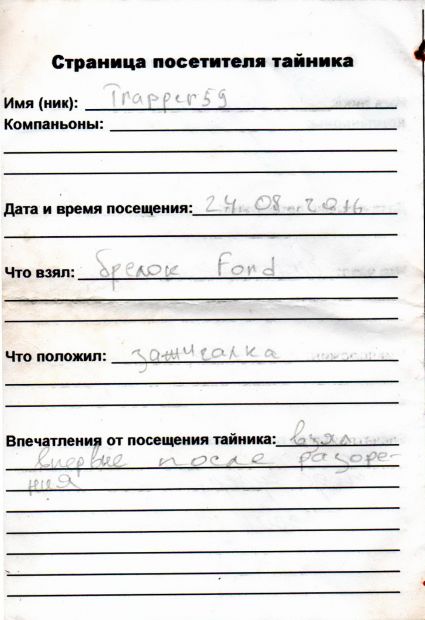 Страница посетителя тайника
Имя (ник): Trapper59
Компаньоны:
Дата и время посещения: 24 08 2014
Что взял: брелок Ford
Что положил: зажигалка
Впечатления от посещения тайника: взял
впервые после разоре-
ния